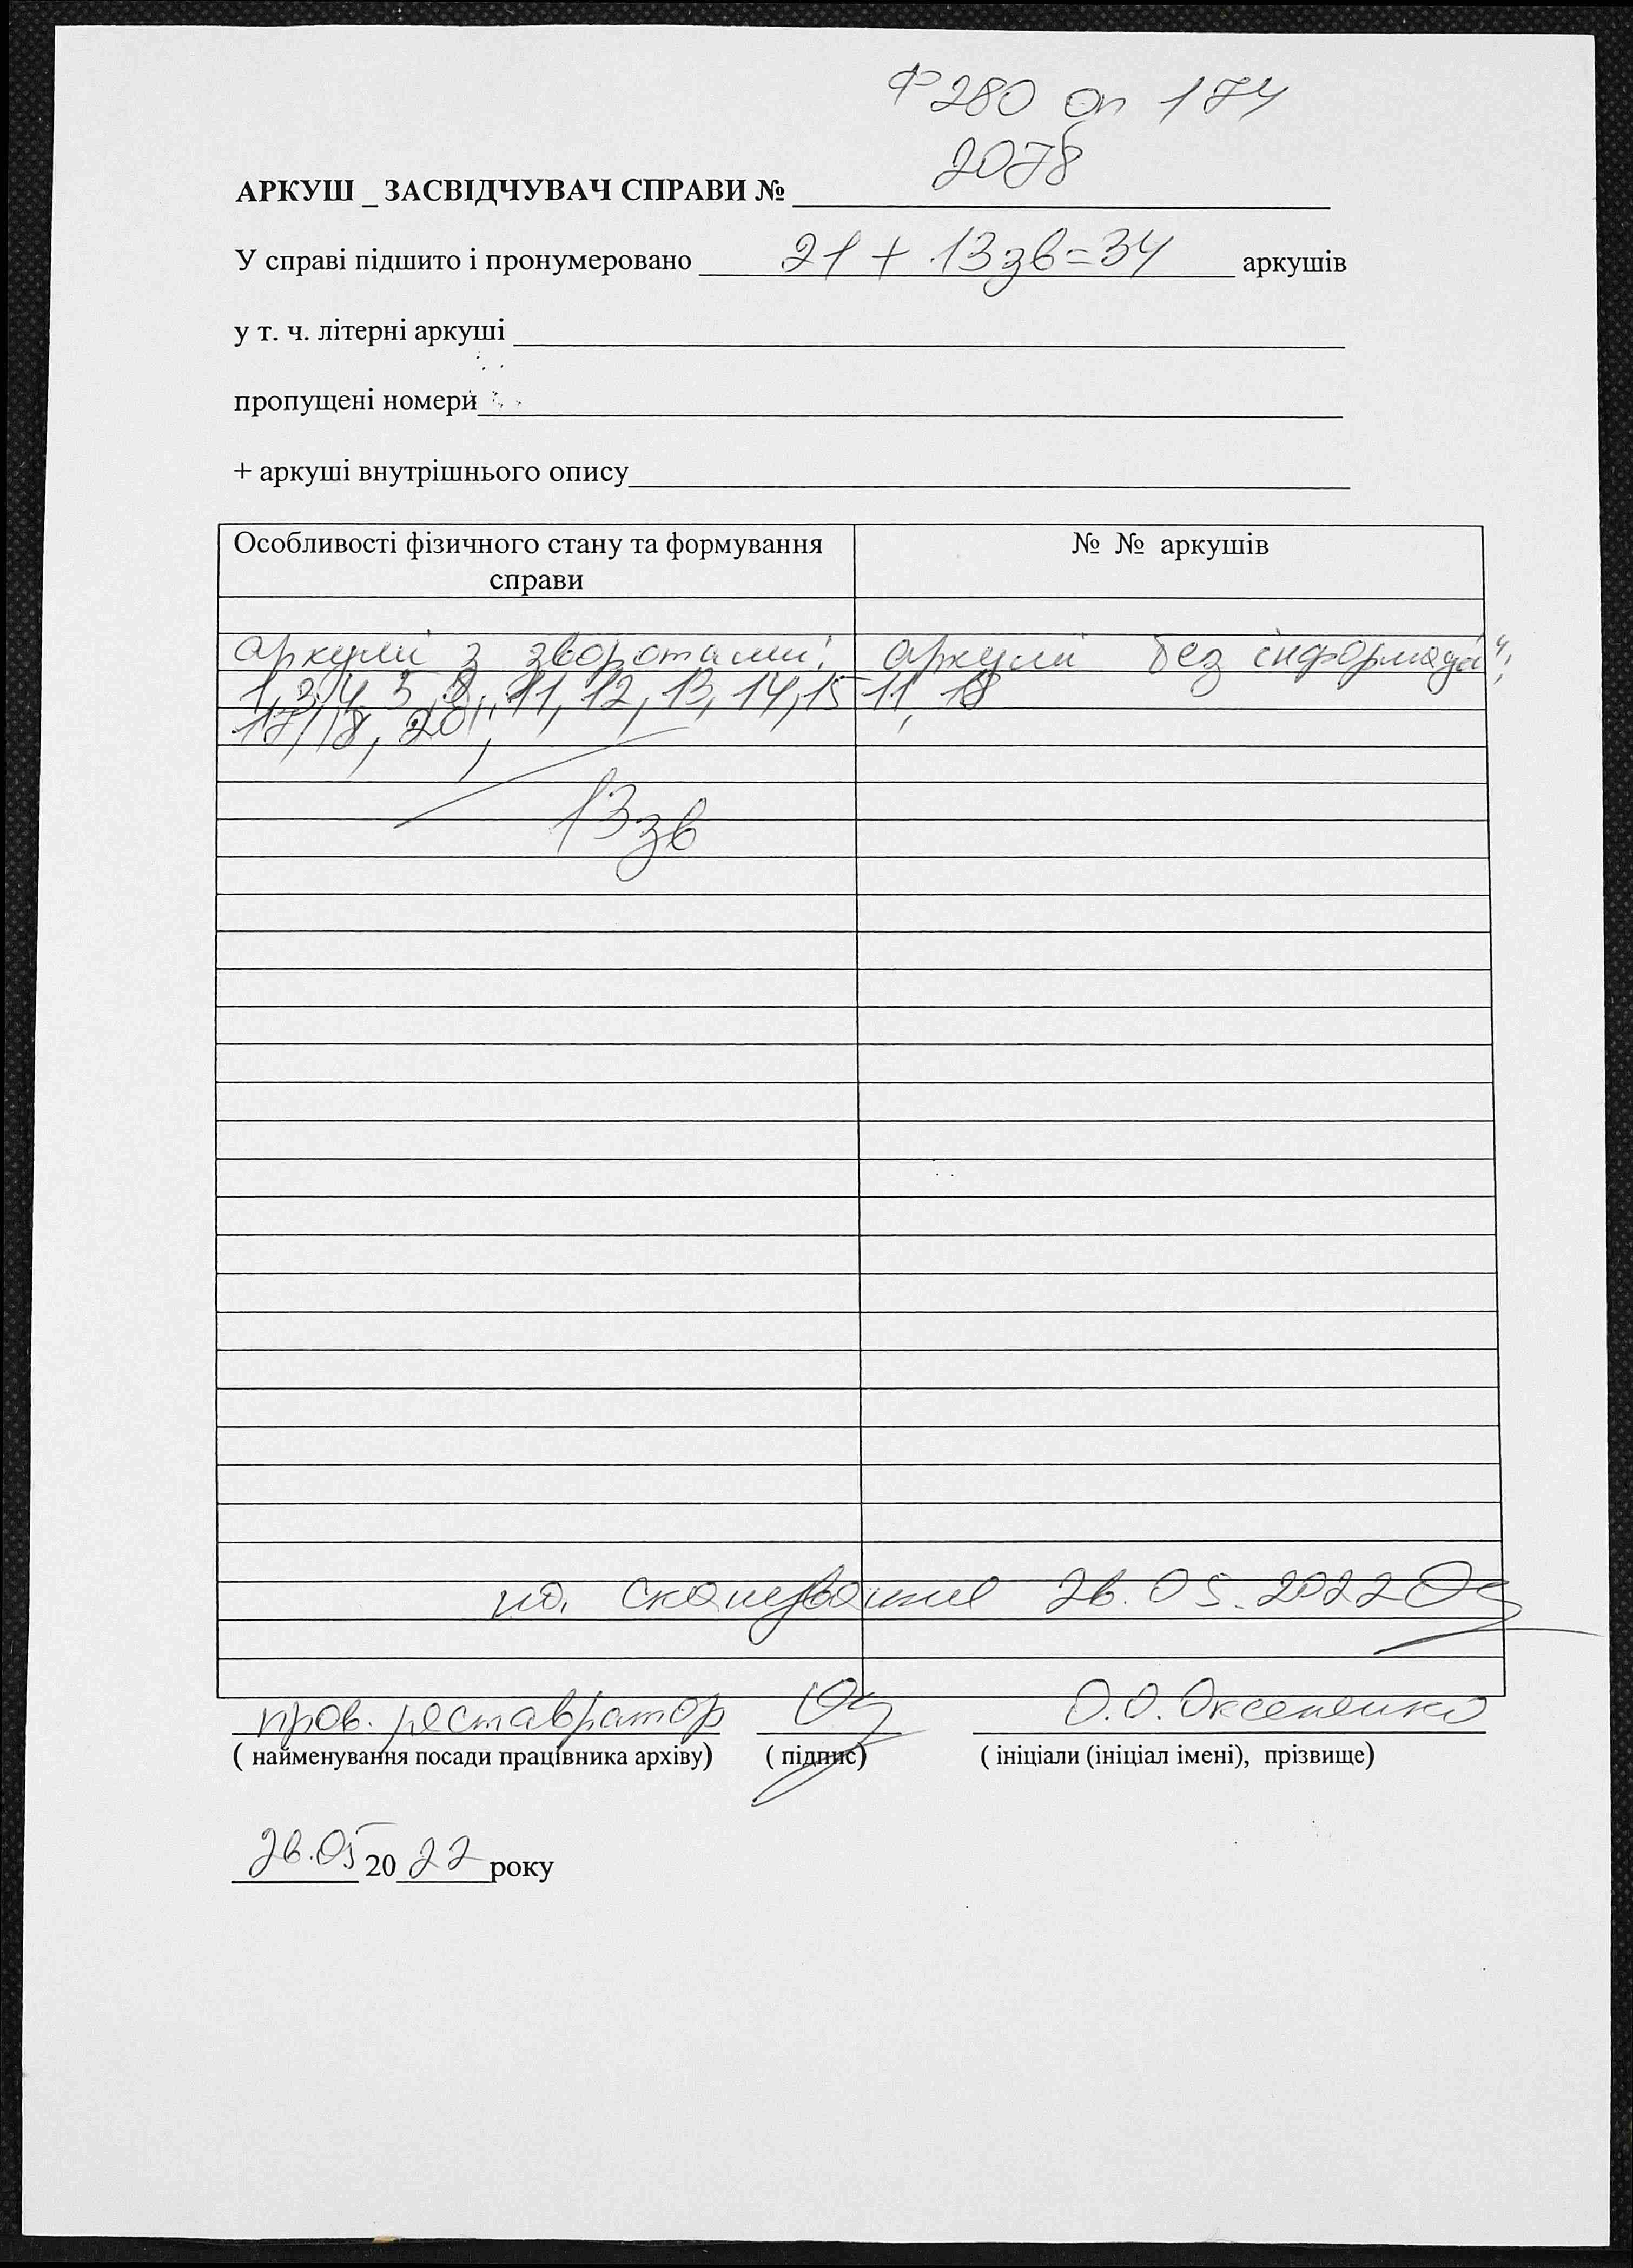 Ф 280 оп 174
2078
АРКУШ _ ЗАСВІДЧУВАЧ СПРАВИ №
У справі підшито і пронумеровано 21 + 13 зв = 34 аркушів
у т. ч. літерні аркуші
пропущені номери
+ аркуші внутрішнього опису
Особливості фізичного стану та формування справи № № аркушів
аркуші з зворотами: аркуші без інформації:
1, 3, 4, 5, 8, 11, 12, 13, 14, 15 11, 18
17, 18, 20;
13 зв
на сканування 26.05.2022
пров. реставратор О.О. Оксененко
( найменування посади працівника архіву) ( підпис) ( ініціали (ініціал імені), прізвище)
26.05 2022 року